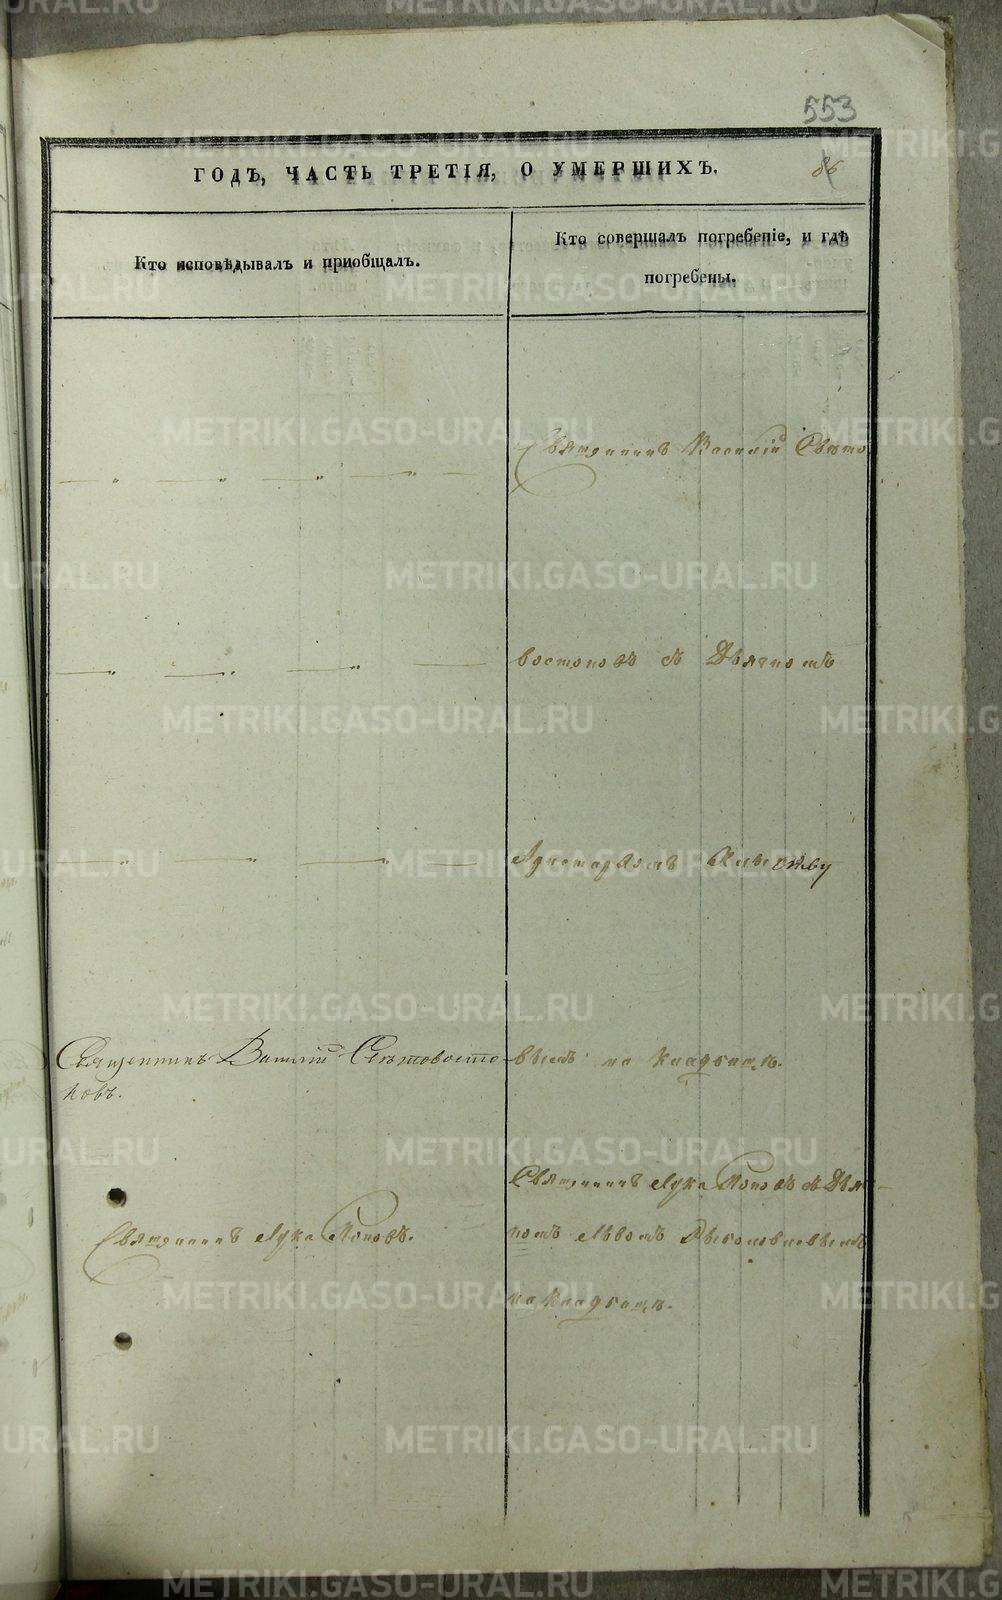 553
86
ГОДЪ, ЧАСТЬ ТРЕТІЯ, О УМЕРШИХЪ.
Кто исповѣдывалъ и приобщалъ.
Кто совершалъ погребеніе, и гдѣ
погребены.
Священникъ Василій Свѣто
востоковъ съ Дьячкомъ
Аристархомъ
Священникъ Василій Свѣтовосто-
ковъ.
на кладбищѣ.
Священникъ Лука Поповъ съ Дья-
Священникъ Лука Поповъ.
комъ Львомъ
на кладбищѣ.
METRIKI.GASO-URAL.RU